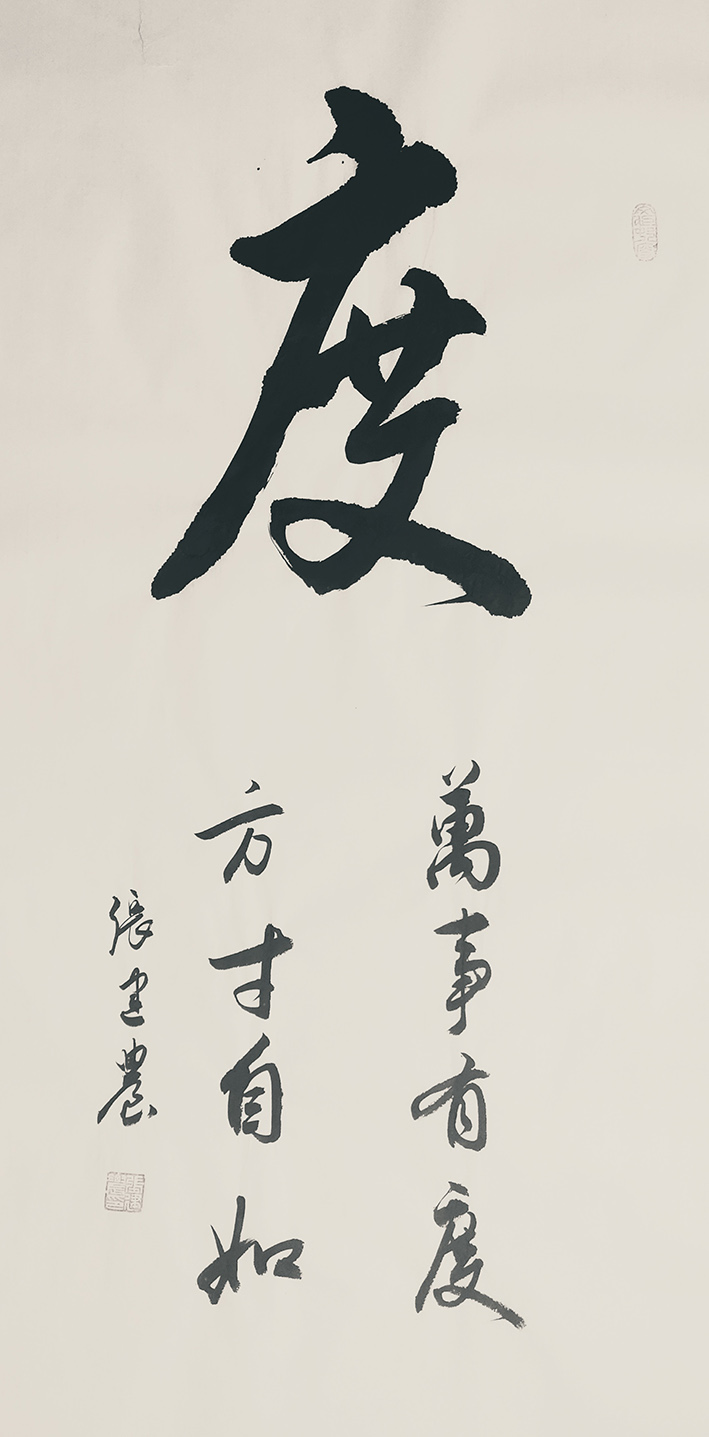 度
萬事有度
方寸自如
張建農